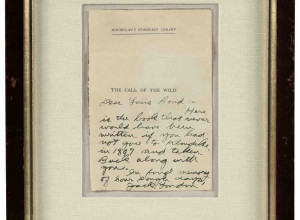 MACMILLAN'S STANDARD LIBRARY
THE CALL OF THE WILD
Dear Louis Bond —
Here
is the book that never
would have been
written if you had
not gone to Klondike
in 1897 and taken
Buck along with
you.
In fond memory
of
Jack London